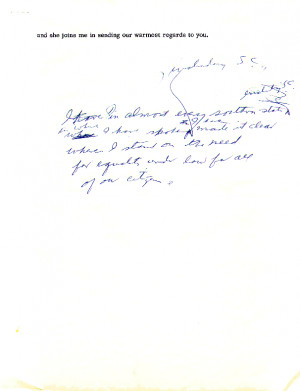 and she joins me in sending our warmest regards to you.
including S.C.,
I have in almost every southern state
where I have spoken made it clear
where I stand on the need
for equality under law for all
of our citizens.